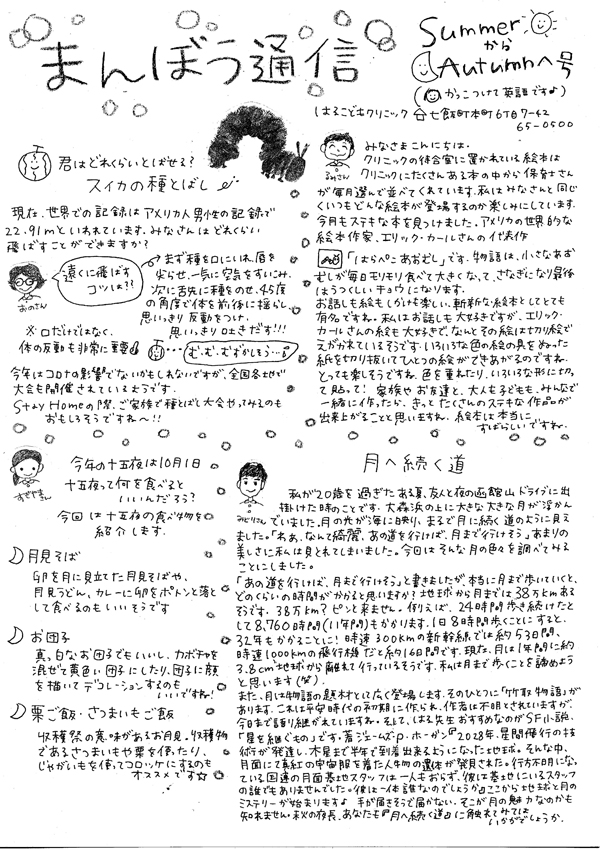 まんぼう通信
Summer
から
Autumnへ号
(かっこつけて英語です♪)
はるこどもクリニック 七飯町本町6丁目7-42
65-0500
君はどれくらいとばせる?
スイカの種とばし
現在、世界での記録はアメリカ人男性の記録で
22.91mといわれています。みなさんはどれくらい
飛ばすことができますか?
おのさん
遠くに飛ばす
コツは!?
まず種を口にいれ、唇を
尖らせ、一気に空気をすいこみ、
次に舌先に種をのせ、45度
の角度で体を前後に揺らし
思いっきり反動をつけ、
思いっきり吐きだす!!!
※口だけではなく、
体の反動も非常に重要
む、む、むずかしそう…
今年はコロナの影響でないかもしれないですが、全国各地で
大会も開催されているそうです。
Stay Homeの際、ご家族で種とばし大会やってみるのも
おもしろそうですね~!!
るみさん
みなさまこんにちは。
クリニックの待合室に置かれている絵本は
クリニックにたくさんある本の中から保育士さん
が毎月選んで並べてくれています。私はみなさんと同じ
くいつもどんな絵本が登場するのか楽しみにしています。
今月もステキな本を見つけました。アメリカの世界的な
絵本作家、エリック・カールさんの代表作
「はらぺこあおむし」です。物語は、小さなあお
むしが毎日モリモリ食べて大きくなって、さなぎになり最後
はうつくしいチョウになります。
お話しも絵もしかけも楽しい、斬新な絵本としてとても
有名ですね。私はお話しも大好きですが、エリック・
カールさんの絵も大好きで、なんとその絵は切り絵で
えがかれているそうです。いろいろな色の絵の具をぬった
紙を切り抜いてひとつの絵ができあがるのですね。
とっても楽しそうですね。色を重ねたり、いろいろな形に切っ
て貼って! 家族やお友達と、大人も子どもも、みんなで
一緒に作ったら、きっとたくさんのステキな作品が
出来上がることと思いますね。絵本は本当に
すばらしいですね。
すぎやまさん
今年の十五夜は10月1日
十五夜って何を食べると
いいんだろう?
今回は十五夜の食べ物を
紹介します。
月見そば
卵を月に見立てた月見そばや、
月見うどん、カレーに卵をポトンと落と
して食べるのもいいそうです
お団子
真っ白なお団子でもいいし、カボチャを
混ぜて黄色い団子にしたり、団子に顔
を描いてデコレーションするのも
いいですね!
栗ご飯・さつまいもご飯
収穫祭の意味があるお月見。収穫物
であるさつまいもや栗を使ったり、
じゃがいもを使ってコロッケにするのも
オススメです☆
月へ続く道
みどりさん
私が20歳を過ぎたある夏、友人と夜の函館山ドライブに出
掛けた時のことです。大森浜の上に大きな大きな月が浮かん
でいました。月の光が海に映り、まるで月に続く道のように見え
ました。「わぁ、なんて綺麗。あの道を行けば、月まで行けそう」あまりの
美しさに私は見とれてしまいました。今回はそんな月の色々を調べてみる
ことにしました。
「あの道を行けば、月まで行けそう」と書きましたが、本当に月まで歩いていくと、
どのくらいの時間がかかると思いますか?地球から月までは38万kmある
そうです。38万km?ピンと来ません。例えば、24時間歩き続けたと
して8,760時間(11年間)もかかります。1日8時間歩くことにすると、
32年もかかることに!時速300kmの新幹線では約53日間、
時速1000kmの飛行機だと約16日間です。現在、月は1年間に約
3.8cm地球から離れて行っているそうです。私は月まで歩くことを諦めよう
と思います(笑)。
また、月は物語の題材として広く登場します。そのひとつに「竹取物語」が
あります。これは平安時代の初期に作られ、作者は不明とされていますが、
今日まで語り継がれていますね。そして、はる先生おすすめなのがSF小説、
「星を継ぐもの」です。著ジェームズ・P・ホーガン『2028年、星間飛行の技
術が発達し、木星まで半年で到着出来るようになった地球。そんな中、
月面にて真紅の宇宙服を着た人物の遺体が発見された。行方不明になっ
ている国連の月面基地スタッフは一人もおらず、彼は基地にいるスタッフ
の誰でもありませんでした。彼は一体誰なのでしょうか』ここから地球と月の
ミステリーが始まります♪ 手が届きそうで届かない、そこが月の魅力なのかも
知れません。秋の夜長、あなたも『月へ続く道』に触れてみては
いかがでしょうか。